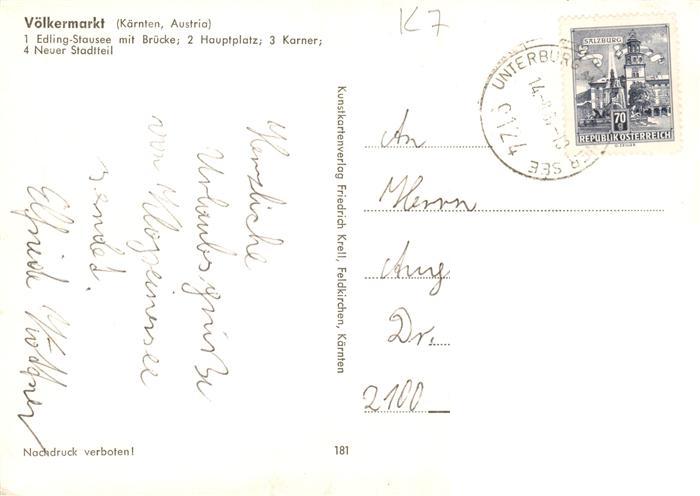 Völkermarkt (Kärnten, Austria)
1 Edling-Stausee mit Brücke; 2 Hauptplatz; 3 Karner;
4 Neuer Stadtteil
K7
Herzliche
Urlaubsgrüße
vom Klopeinersee
sendet
Elfriede
Kunstkartenverlag Friedrich Krell, Feldkirchen, Kärnten
SALZBURG
70
REPUBLIK ÖSTERREICH
UNTERBURG
SEE
9124
An
Herrn
Aug
Dr.
2100
Nachdruck verboten!
181